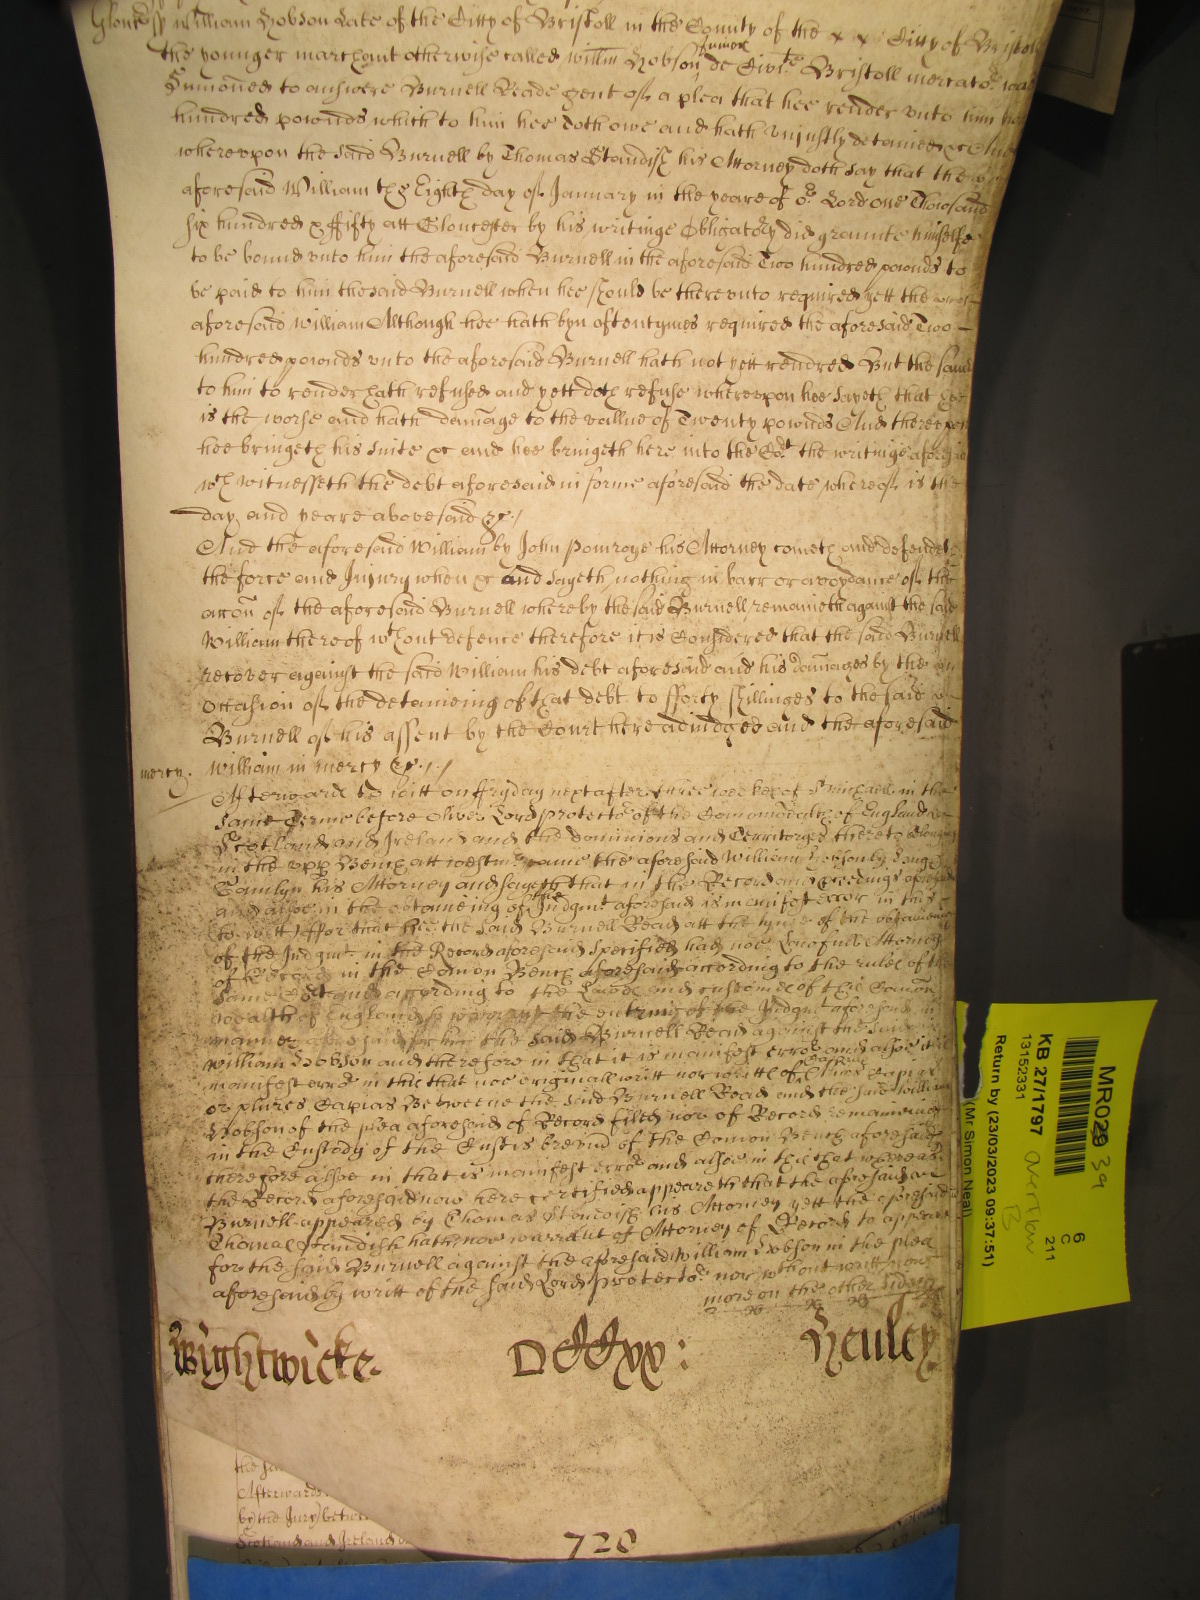 Glouc ss William Hobson Late of the Citty of Bristoll in the County of the x x Citty of Bristoll
the younger marchant otherwise called willm Hobson Junior de Civit Bristoll mercator was
Sumoned to answere Burnell Reade gent of a plea that hee render unto him two
hundred pownds which to him hee doth owe and hath uniustly detained &c And
wherevpon the said Burnell by Thomas Standish his Attorney doth say that the
aforesaid William the Eighth day of January in the yeare of or Lord one Thowsand
six hundred & ffifty att Gloucester by his writinge Obligatory did graunte himselfe
to be bound vnto him the aforesaid Burnell in the aforesaid Two hundred pownds to
be paid to him the said Burnell when hee should be therevnto required yett the
aforesaid William Although hee hath byn oftentymes required the aforesaid Two
hundred pownds vnto the aforesaid Burnell hath not yett rendred But the same
to him to render hath refused and yett doth refuse wherevpon hee sayeth that hee
is the worse and hath damage to the vallue of Twenty pownds And therevpon
hee bringeth his suite &c and hee bringeth here into the Cort the writinge aforesaid
wch witnesseth the debt aforesaid in forme aforesaid the date whereof is the
day and yeare abovesaid &c
And the aforesaid William by John Pomroye his Attorney cometh and defendeth
the force and Injury when &c And sayeth nothing in barr or avoydance of the
accon of the aforesaid Burnell whereby the said Burnell remaineth against the said
William thereof wthout defence therefore it is Considered that the said Burnell
recover against the said William his debt aforesaid and his damages by the
occasion of the detaineing of that debt to fforty shillinges to the said
Burnell of his assent by the Court here adiudged and the aforesaid
mercy. William in mercy &c
Afterward to witt on ffryday next after three weekes of St Michaell in the
same Terme before Oliver Lord protector of the Comonwealth of England
Scotland and Ireland and the dominions and Territoryes thereto belonging
in the vpp Bench att westmr came the aforesaid William Hobson by
his Attorney and sayeth that in the Record and proceedings aforesaid
and alsoe in the obtaineing of the Judgmt aforesaid is manifest error in this
to witt ffor that hee the said Burnell Read att the tyme of the obtaineing
of the Judgmt in the Record aforesaid Specified had noe Lawfull Attorney
of Record in the Comon Bench aforesaid according to the rules of the
same Cort and according to the Lawes and customes of this Comon
wealth of England the entring of the Judgmt aforesaid in
manner aforesaid for him the said Burnell Read against the said
William Hobson and therefore in that it is manifest error and alsoe it is
manifest error in this that noe originall writt nor writt of Capias Alias Capias
or plures Capias Betweene the said Burnell Read and the said William
Hobson of the plea aforesaid of Record filed nor of Record remaineing
in the Custody of the Custos brevium of the Comon Bench aforesaid
therefore alsoe in that is manifest error and alsoe in this that whereas
the Record aforesaid now here certified appeareth that the aforesaid
Burnell appeared by Thomas Standish his Attorney yett the aforesaid
Thomas Standish hath noe warrant of Attorney of Record to appeare
for the said Burnell against the aforesaid William Hobson in the plea
aforesaid by writt of the said Lord protector now wthout writt
more on the other side
Wightwicke Henley
the
Afterwards
by the Jury betw
Scotland and Ireland
728
MR029 39
KB 27/1797
13152331
overflow
B
6
C
211
Return by (23/03/2023 09:37:51)
(Mr Simon Neal)